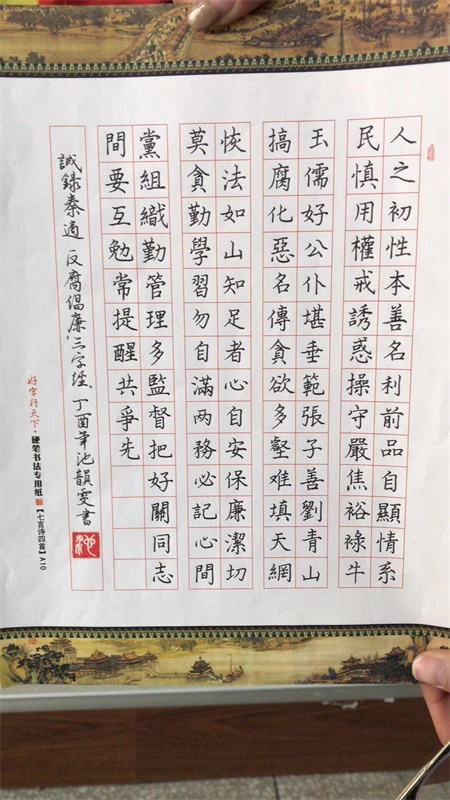 人之初性本善名利前品自顯情系
民慎用權戒誘惑操守嚴焦裕祿牛
玉儒好公仆堪垂範張子善劉青山
搞腐化惡名傳貪欲多壑难填天網
恢法如山知足者心自安保廉潔切
莫貪勤學習勿自滿两務必記心間
黨組織勤管理多監督把好關同志
間要互勉常提醒共爭先
誠録秦适反腐倡廉三字经丁酉年池韻雯書
好字行天下·硬笔书法专用纸【七言诗四首】A10